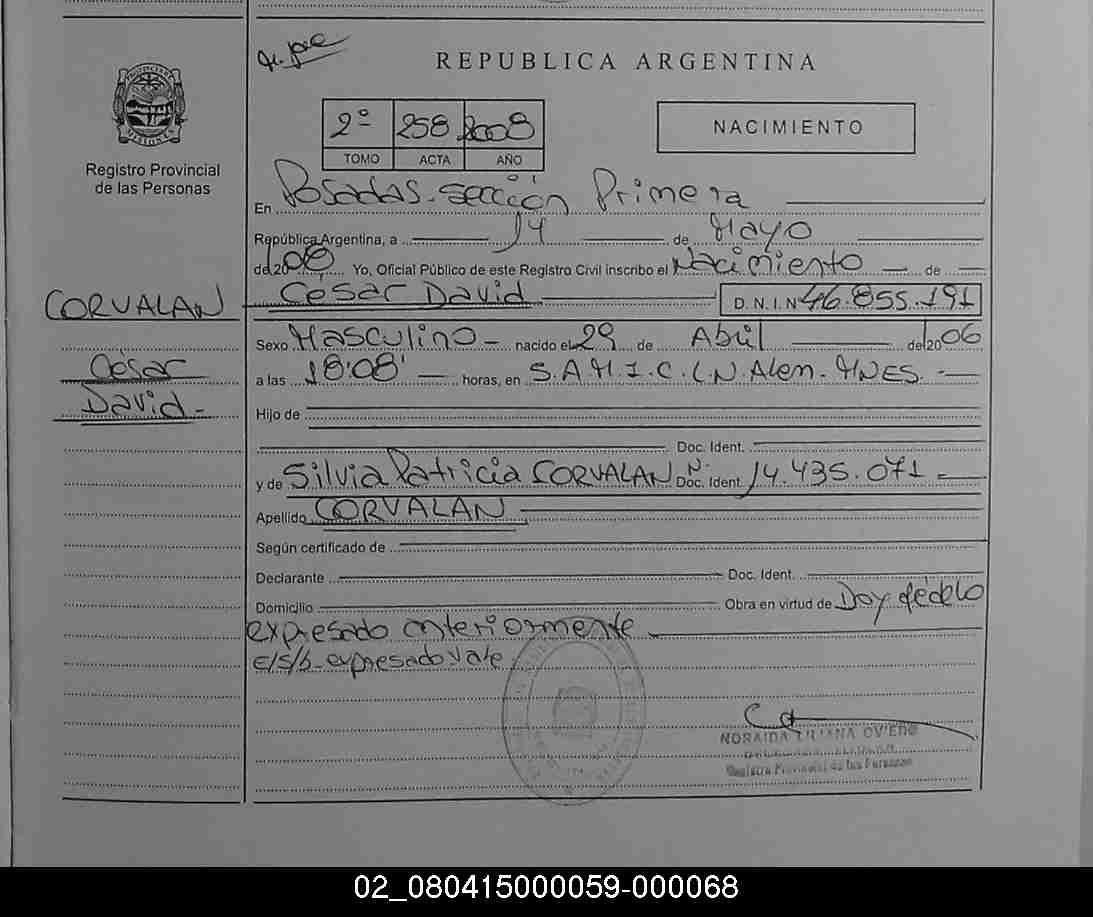 REPUBLICA ARGENTINA
2º 258 2008
TOMO ACTA AÑO
NACIMIENTO
Registro Provincial
de las Personas
En Posadas - sección Primera
República Argentina, a 14 de Mayo
de 2008 Yo, Oficial Público de este Registro Civil inscribo el Nacimiento de
CORVALAN
César David D.N.I.N 46.855.191
César
David -
Sexo Masculino - nacido el 29 de Abril de 2006
a las 18:08' - horas, en S.A.M.I.C. L.N. Alem. MNES. -
Hijo de
Doc. Ident.
y de Silvia Patricia CORVALAN Nº Doc. Ident. 14.435.071 -
Apellido CORVALAN
Según certificado de
Declarante Doc. Ident.
Domicilio Obra en virtud de Doy fé de lo
expresado anteriormente
e/s/b - expresado vale
NORAIDA LILIANA OVIEDO
Registro Provincial de las Personas
02_080415000059-000068